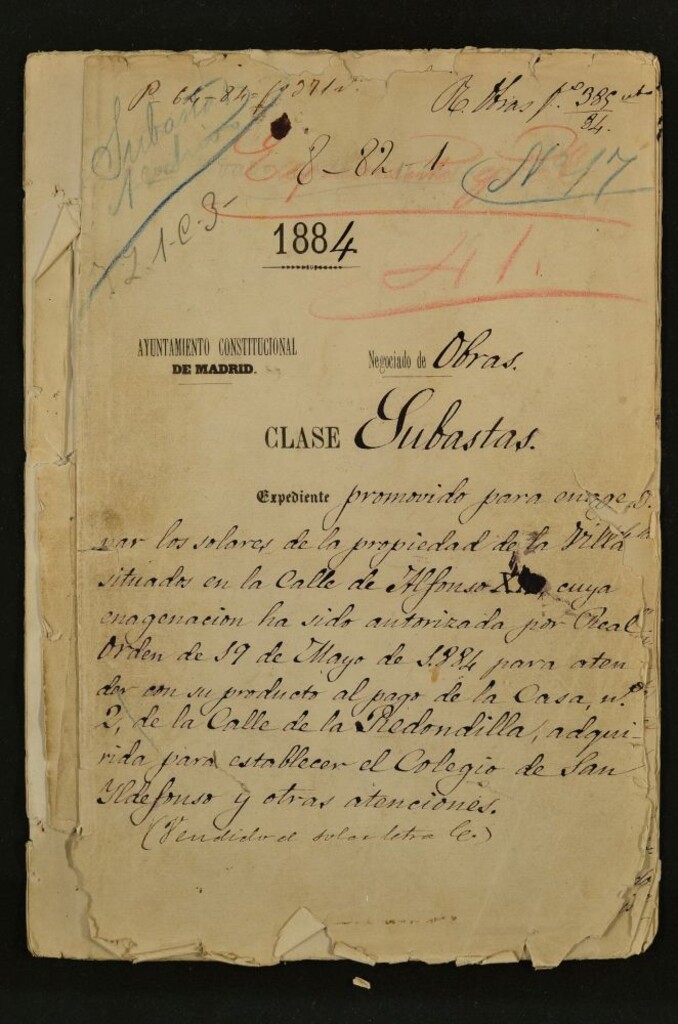 P 64-84-fº 371
R. Obras fº 385
84.
Subastas
8-82-1
Nº 17
7.2.1-C-3-
1884
41.
AYUNTAMIENTO CONSTITUCIONAL
DE MADRID.
Negociado de Obras.
CLASE Subastas.
Expediente promovido para enage
nar los solares de la propiedad de la Villa
situados en la Calle de Alfonso cuya
enagenacion ha sido autorizada por Real
Orden de 19 de Mayo de 1884 para aten
der con su producto al pago de la Casa, nº
2, de la Calle de la Redondilla, adqui-
rida para establecer el Colegio de San
Yldefonso y otras atenciones.
(Vendido el solar letra C.)